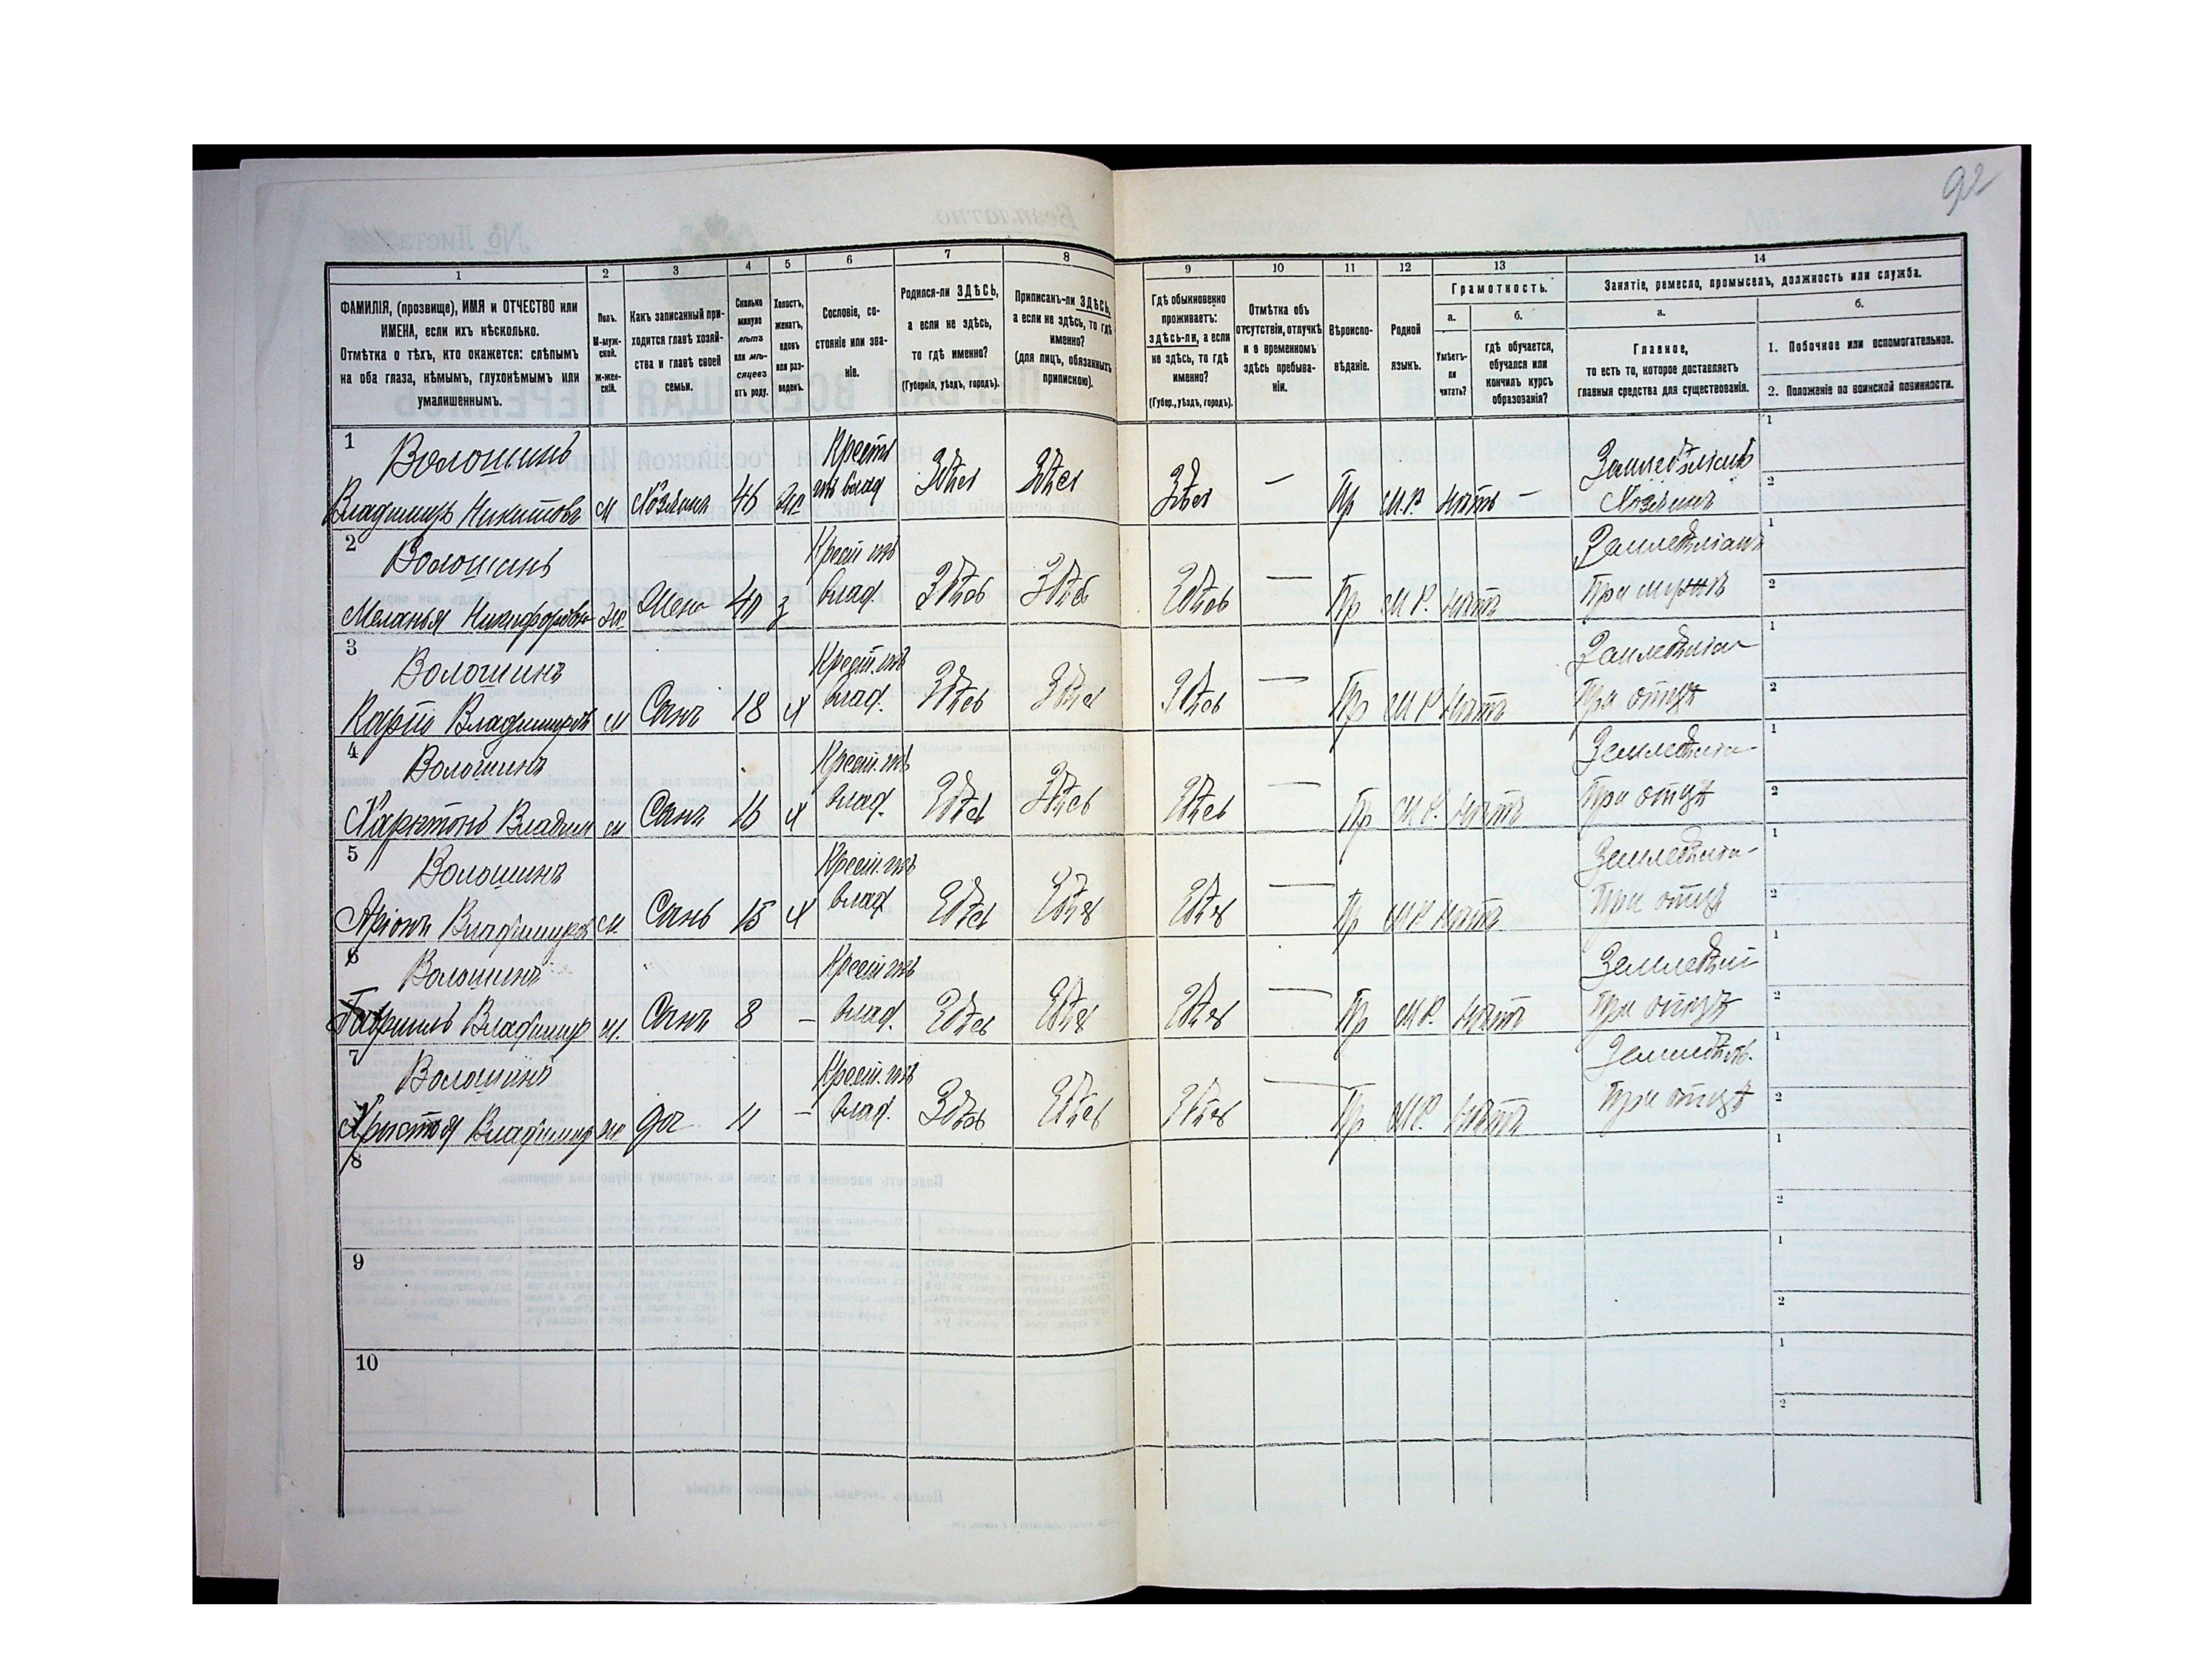 92
1 2 3 4 5 6 7 8 9 10 11 12 13 14
ФАМИЛІЯ, (прозвище), ИМЯ и ОТЧЕСТВО или
ИМЕНА, если ихъ нѣсколько.
Отмѣтка о тѣхъ, кто окажется: слѣпымъ
на оба глаза, нѣмымъ, глухонѣмымъ или
умалишеннымъ.
Полъ.
М-муж-
ской.
ж-жен-
скій.
Какъ записанный при-
ходится главѣ хозяй-
ства и главѣ своей
семьи.
Сколько
минуло
лѣтъ
или мѣ-
сяцевъ
отъ роду.
Холостъ,
женатъ,
вдовъ
или раз-
веденъ.
Сословіе, со-
стояніе или зва-
ніе.
Родился-ли ЗДѢСЬ,
а если не здѣсь,
то гдѣ именно?
(Губернія, уѣздъ, городъ).
Приписанъ-ли ЗДѢСЬ,
а если не здѣсь, то гдѣ
именно?
(для лицъ, обязанныхъ
припискою).
Гдѣ обыкновенно
проживаетъ:
здѣсь-ли, а если
не здѣсь, то гдѣ
именно?
(Губер., уѣздъ, городъ).
Отмѣтка объ
отсутствіи, отлучкѣ
и о временномъ
здѣсь пребыва-
ніи.
Вѣроиспо-
вѣданіе.
Родной
языкъ.
Грамотность.
а.
Умѣетъ-
ли
читать?
б.
гдѣ обучается,
обучался или
кончилъ курсъ
образованія?
Занятіе, ремесло, промыселъ, должность или служба.
а.
Главное,
то есть то, которое доставляетъ
главныя средства для существованія.
б.
1. Побочное или вспомогательное.
2. Положеніе по воинской повинности.
1 Волошинъ Крестъ Земледѣліемъ 1
Владимиръ Никитовъ М Хозяинъ 46 Же изъ влад Здѣсь Здѣсь Здѣсь — Пр М.Р. нѣтъ — Хозяинъ 2
2 Волошинъ Крест изъ 1
Меланья Никифорова Же Жена 40 З влад. Здѣсь Здѣсь Здѣсь — Пр М Р. нѣтъ При мужѣ 2
3 Волошинъ Крест. изъ 1
Владимировъ М Сынъ 18 Х влад. Здѣсь Здѣсь Здѣсь — Пр М Р нѣтъ При отцѣ 2
4 Волошинъ Крест. изъ 1
Харитонъ Владим М Сынъ 16 Х влад. Здѣсь Здѣсь Здѣсь — Пр М Р. нѣтъ При отцѣ 2
5 Волошинъ Крест. изъ 1
Владимировъ М Сынъ 15 Х влад Здѣсь Здѣсь Здѣсь — Пр М Р нѣтъ При отцѣ 2
6 Волошинъ Крест изъ 1
Гавриилъ Владимир М. Сынъ 8 — влад. Здѣсь Здѣсь Здѣсь — Пр М Р. нѣтъ При отцѣ 2
7 Волошинъ Крест. изъ 1
Владимир Же доч 11 — влад. Здѣсь Здѣсь Здѣсь — Пр М Р. нѣтъ При отцѣ 2
8 1
2
9 1
2
10 1
2